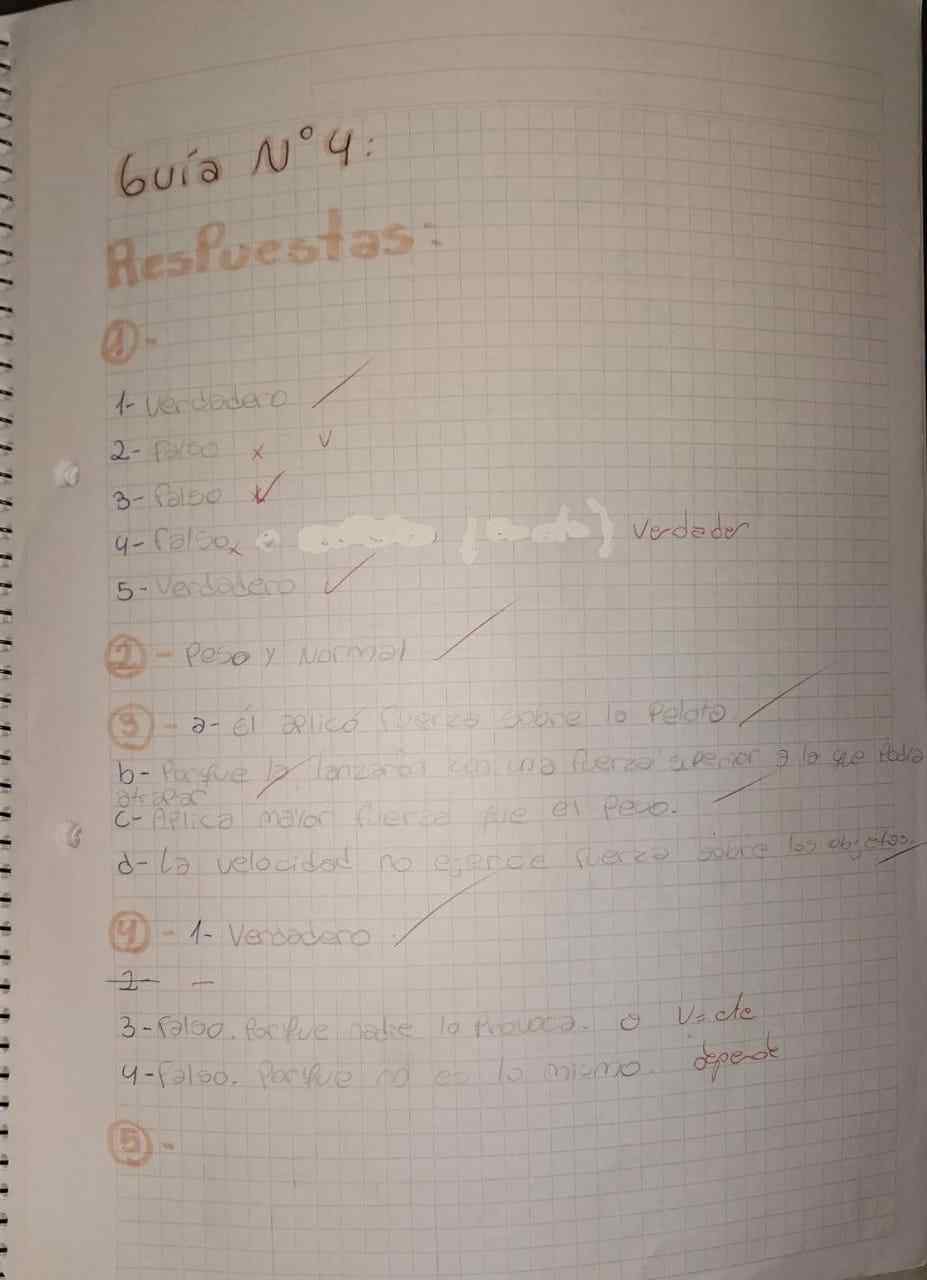 Guía N°4:
Respuestas:
1-
1- Verdadero
2- Falso x v
3- Falso
4- Falso x Verdader
5- Verdadero
2- Peso y Normal
3- a- Él aplicó fuerza sobre la Pelota
b- Porque la lanzaron con una fuerza superior a la que Podia
atrapar
c- Aplica mayor fuerza que el Peso.
d- La velocidad no ejerce fuerza sobre los objetos.
4- 1- Verdadero
2- -
3- Falso. Porque nadie la Provoca. o V=cte
4- Falso. Porque no es lo mismo. depende
5-